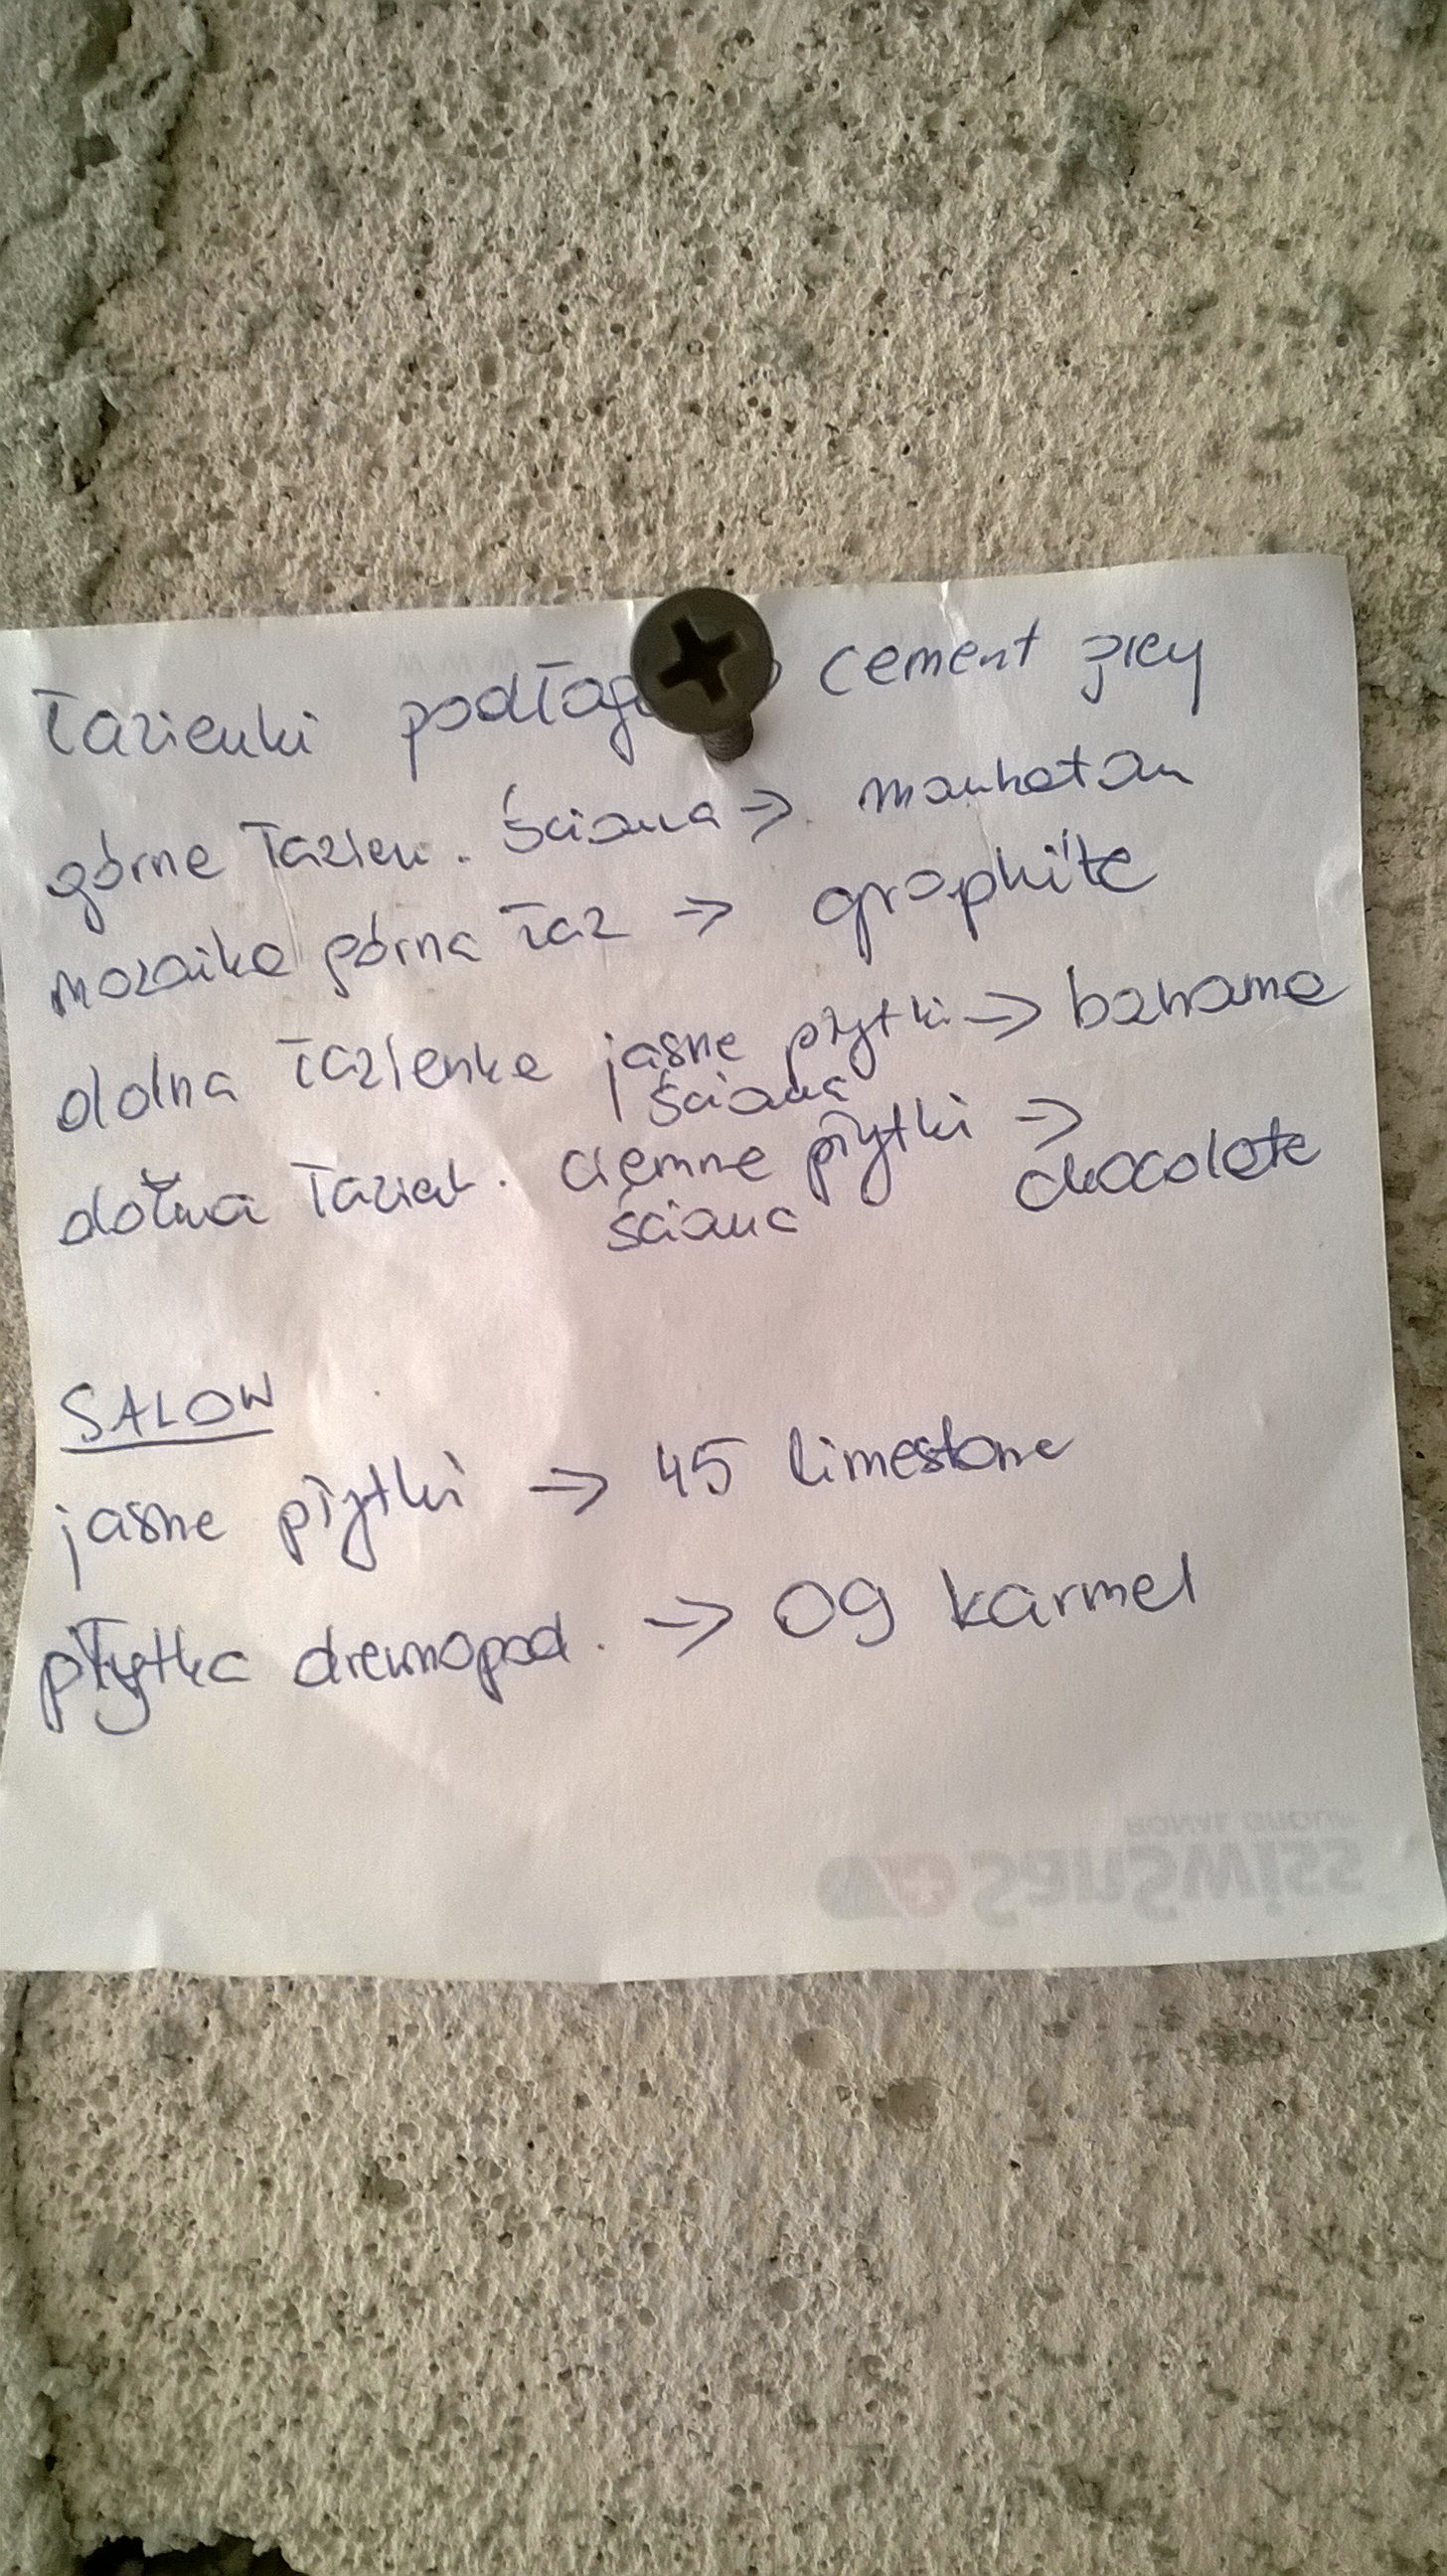 łazienki podłoga cement grey
górne łazien. ściana → manhatan
mozaika górna łaz → graphite
dolna łazienka jasne płytki → bahama
ściana
dolna łazienk. ciemne płytki →
ściana chocolate
SALON
jasne płytki → 45 limestone
płytka drewnopod. → 09 karmel
RONAL GROUP
SanSwiss